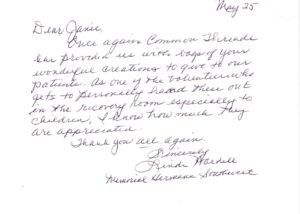 May 25
Dear Janie,
Once again Common Threads
has provided us with bags of your
wonderful creations to give to our
patients. As one of the volunteers who
gets to personally hand these out
in the recovery room especially to
children, I know how much they
are appreciated.
Thank you all again.
Sincerely
Linda Wardell
Memorial Hermann Southwest